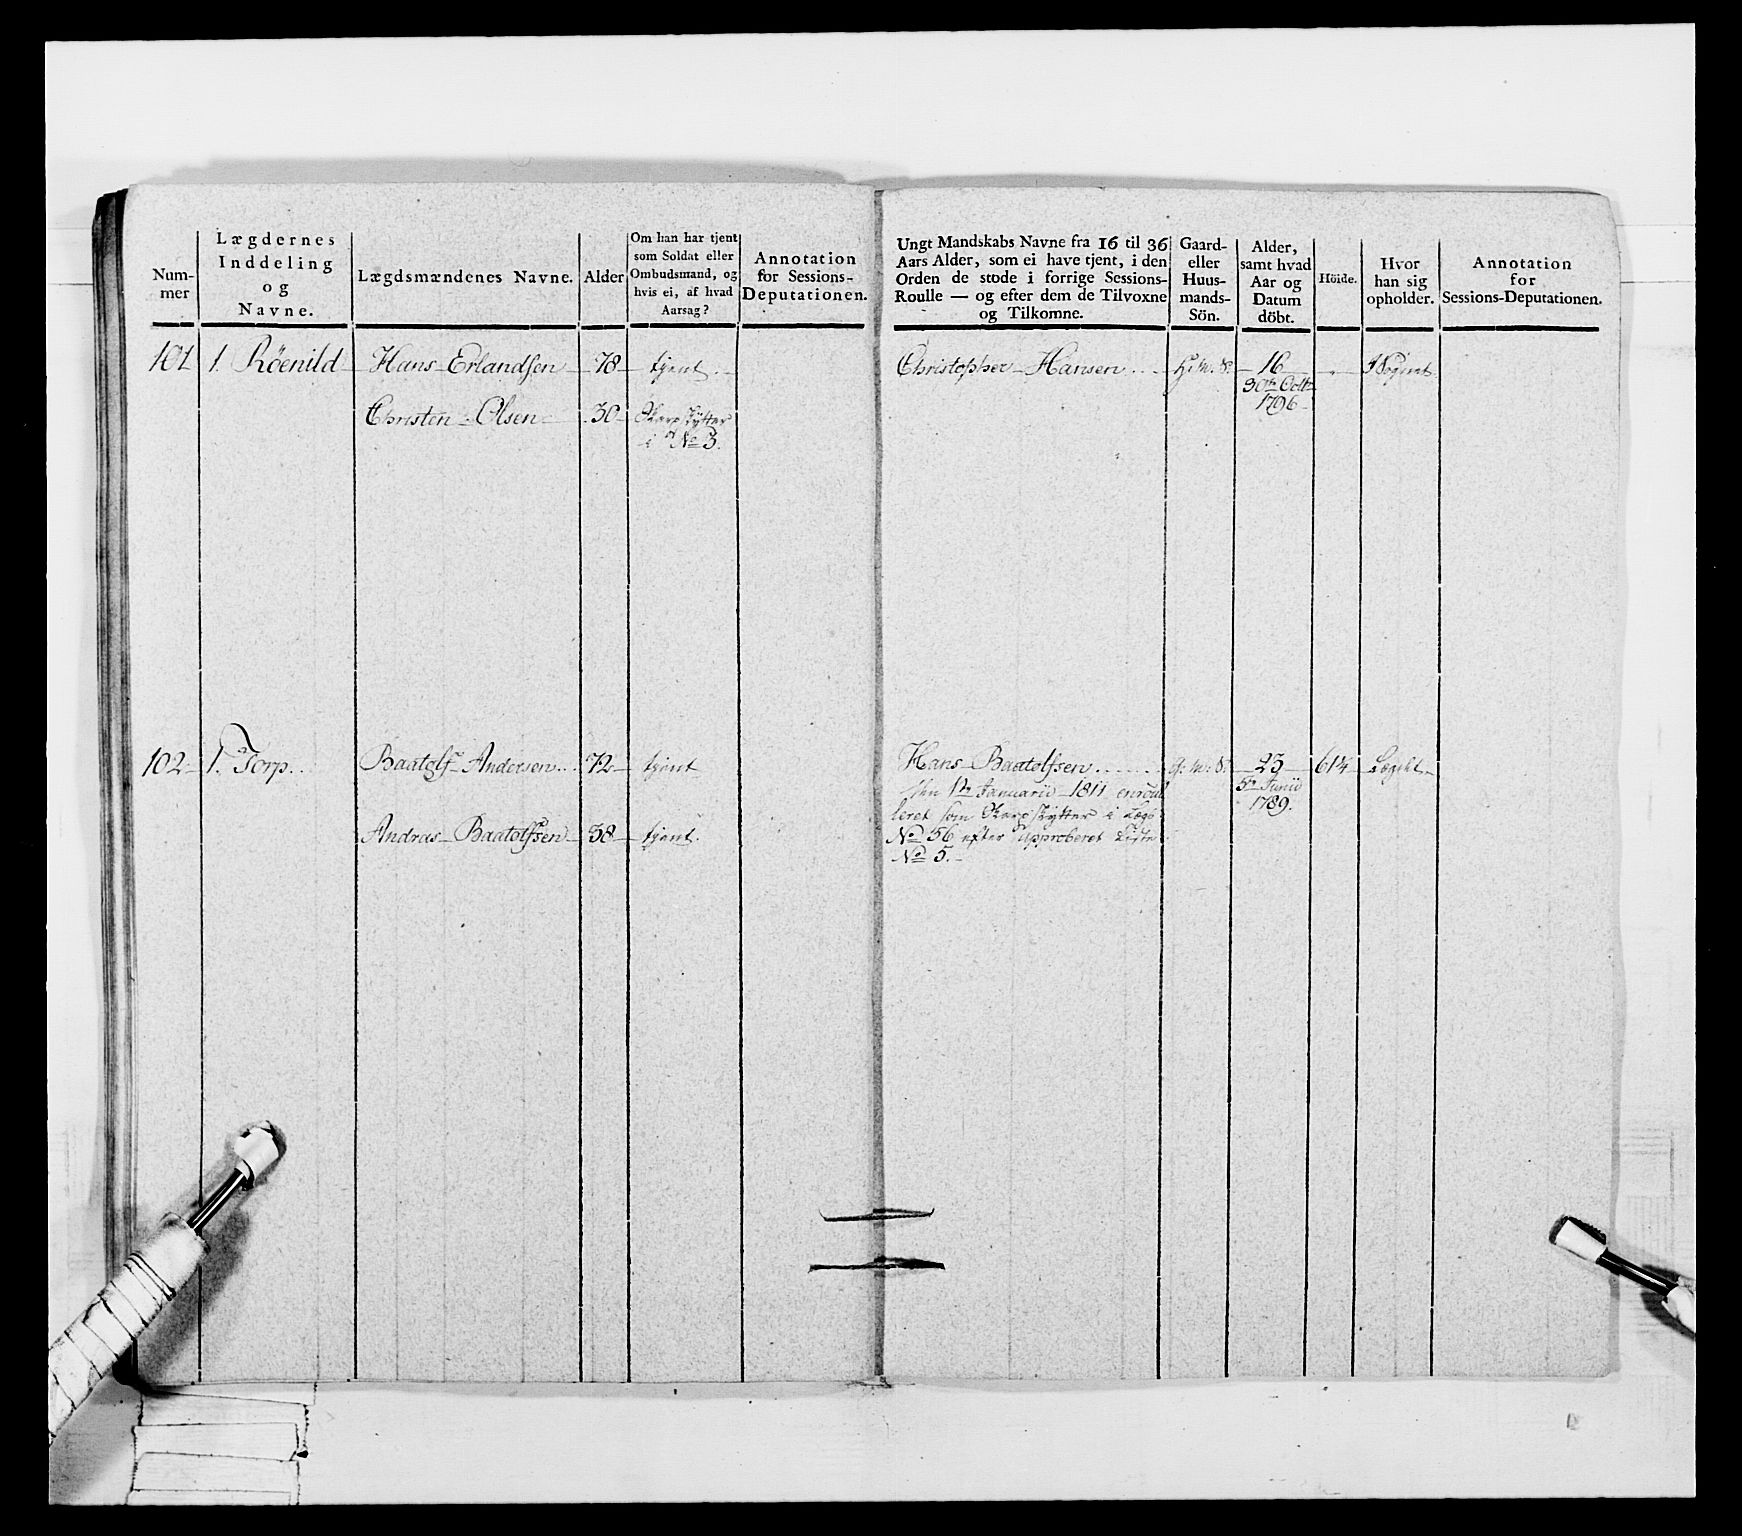 Num-
mer
Lægdernes
Inddeling
og
Navne.
Lægdsmændenes Navne.
Alder
Om han har tjent
som Soldat eller
Ombudsmand, og
hvis ei, af hvad
Aarsag?
Annotation
for Sessions-
Deputationen.
101 1. Röenild Hans Erlandsen 78 tjent.
Christen Olsen 30 Skarpskytter
i No 3.
102 1. Torp Baatolf Andersen 72 tjent
Andras Baatolfsen 38 tjent.
Ungt Mandskabs Navne fra 16 til 36
Aars Alder, som ei have tjent, i den
Orden de stode i forrige Sessions-
Roulle — og efter dem de Tilvoxne
og Tilkomne.
Gaard-
eller
Huus-
mands-
Sön.
Alder,
samt hvad
Aar og
Datum
döbt.
Höide.
Hvor
han sig
opholder.
Annotation
for
Sessions-Deputationen.
Christopher Hansen H: m: S: 16 " I Sognet
30te Octbr
1796
Hans Baatolfsen G: m: S: 23 61¼ Lægdet
den 1te Januarii 1811 enroul
5te Junii
leret som Skarpskytter i Lægd
1789.
No 56 efter approberet Liste
No 5.